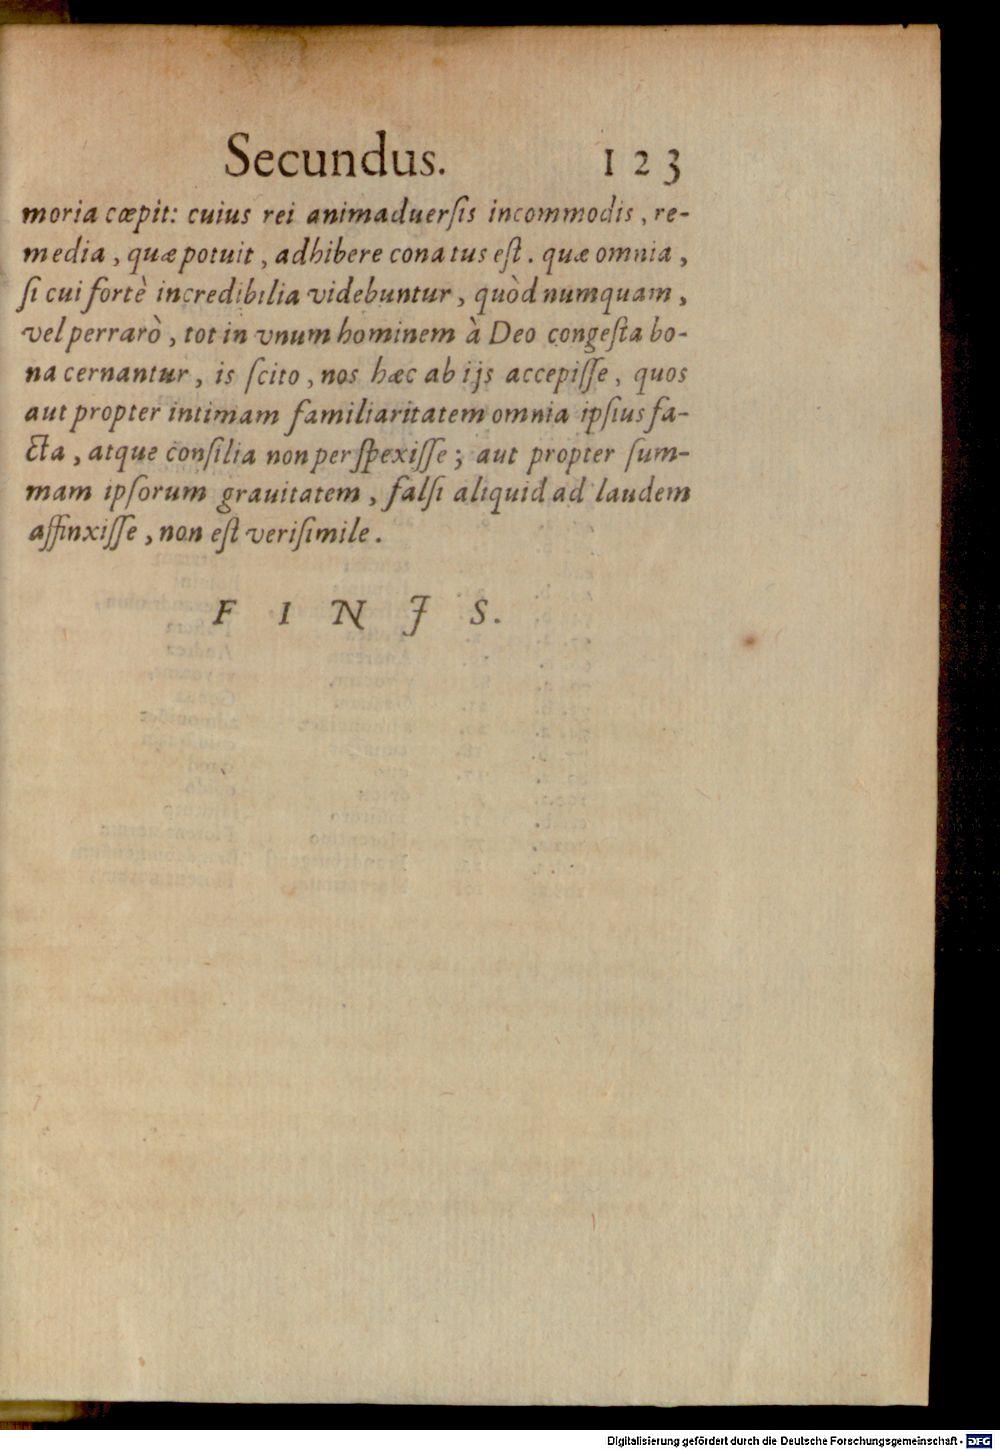 Secundus. 123
moria cœpit: cuius rei animaduerſis incommodis, re-
media, quæ potuit, adhibere conatus eſt. quæ omnia,
ſi cui fortè incredibilia videbuntur, quòd numquam,
vel perrarò, tot in vnum hominem à Deo congeſta bo-
na cernantur, is ſcito, nos hæc ab ijs accepiſſe, quos
aut propter intimam familiaritatem omnia ipſius fa-
cta, atque conſilia non perſpexiſſe; aut propter ſum-
mam ipſorum grauitatem, falſi aliquid ad laudem
affinxiſſe, non eſt veriſimile.
F I N J S.
Digitalisierung gefördert durch die Deutsche Forschungsgemeinschaft - DFG